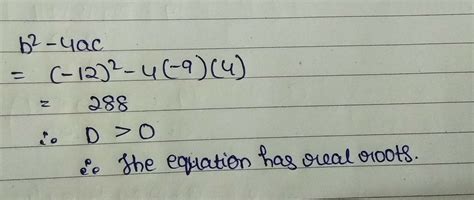 b² - 4ac
= (-12)² - 4(-9)(4)
= 288
∴ D > 0
∴ The equation has real roots.